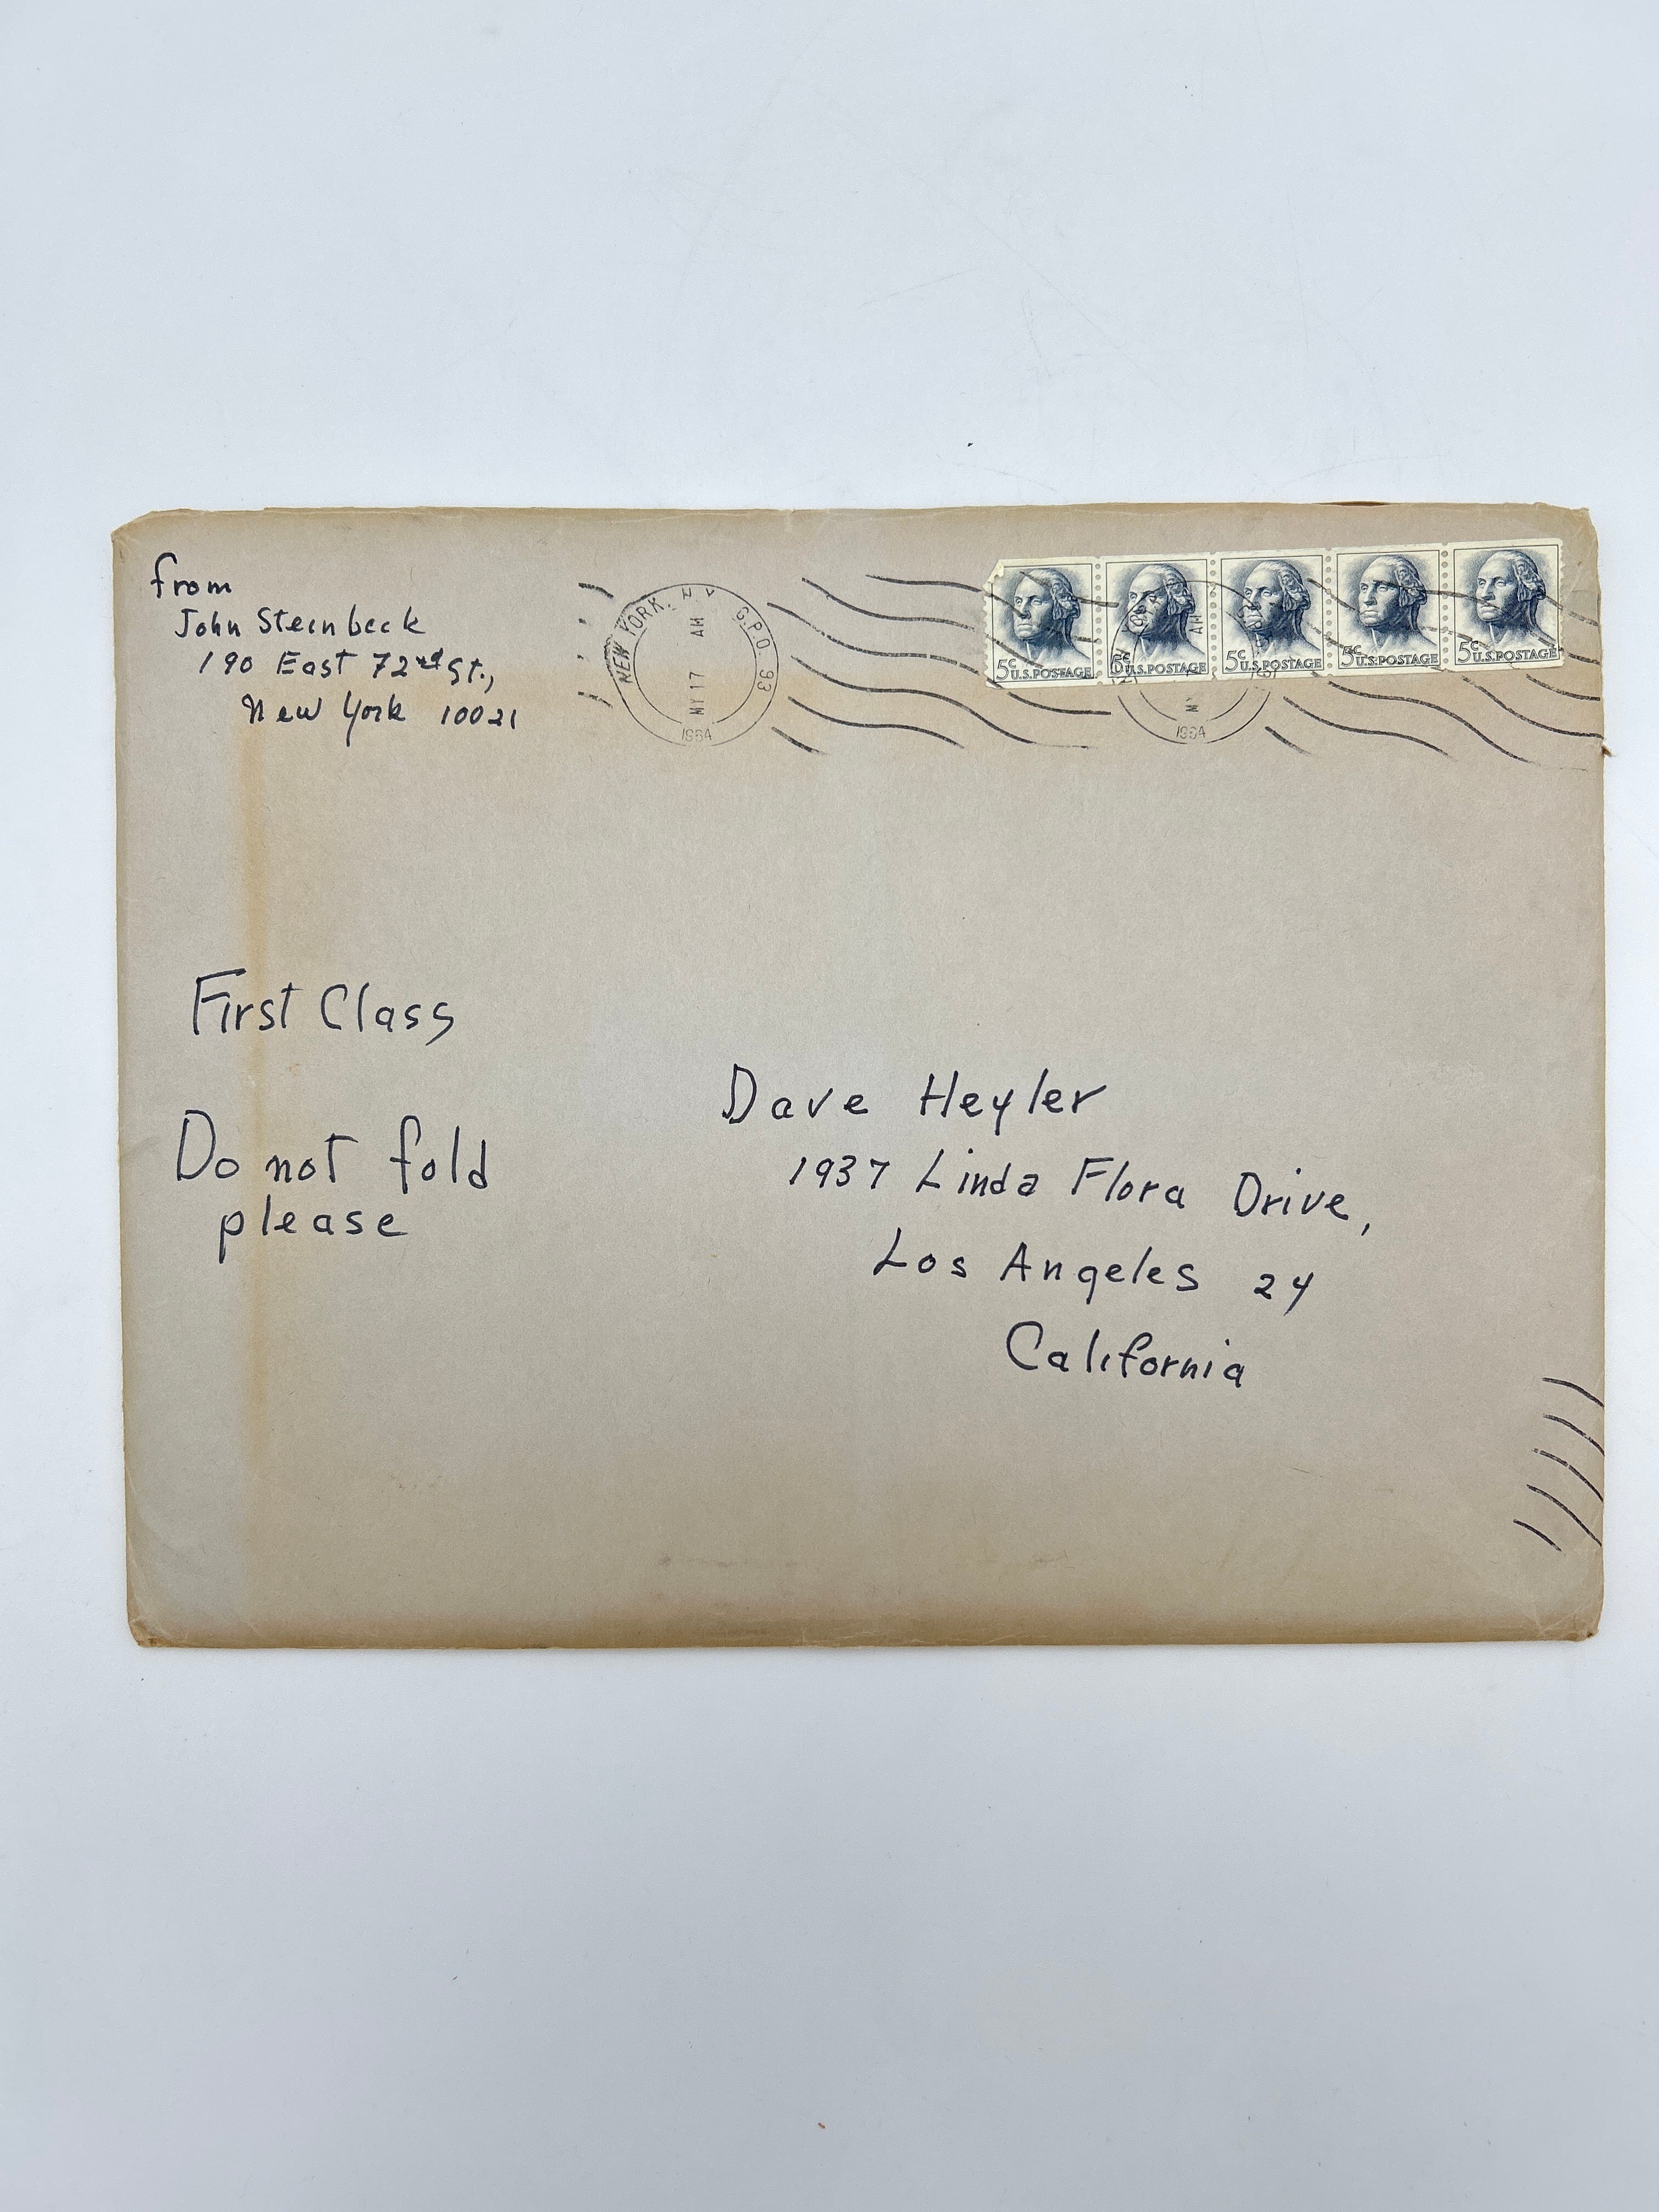 from
John Steinbeck
190 East 72nd St.,
New York 10021
NEW YORK, N.Y. G.P.O. 93
AM
MY 17
1964
5c U.S.POSTAGE
5c U.S.POSTAGE
5c U.S.POSTAGE
5c U.S.POSTAGE
5c U.S.POSTAGE
AM
1964
First Class
Do not fold
please
Dave Heyler
1937 Linda Flora Drive,
Los Angeles 24
California